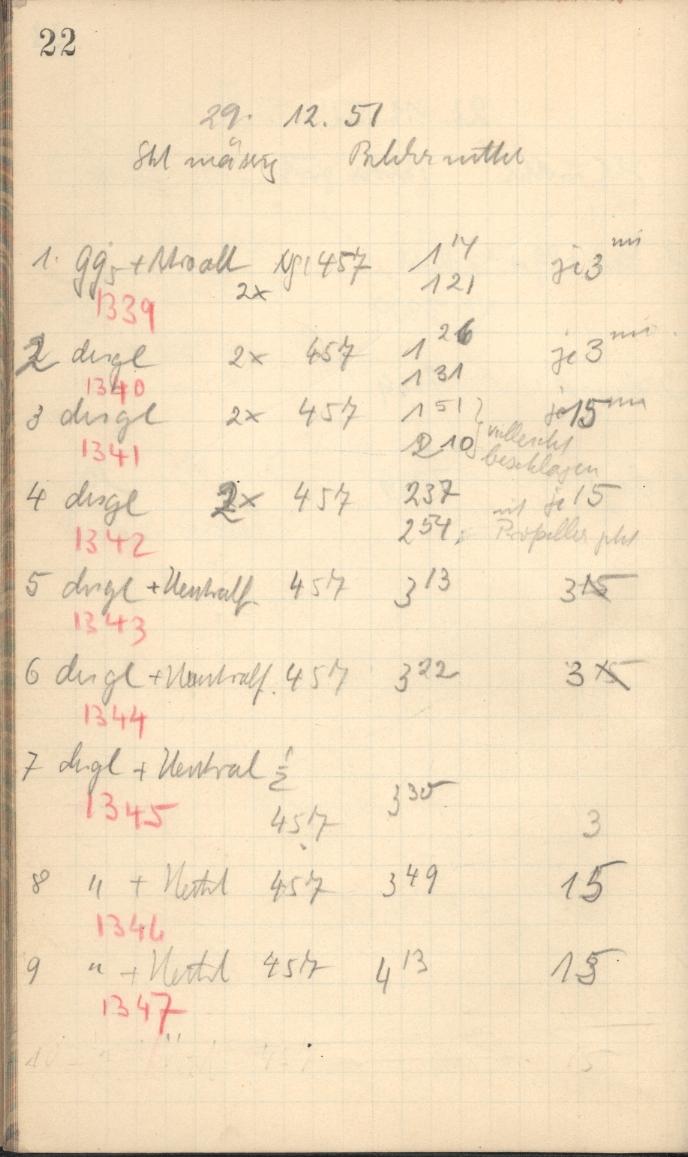 22
29. 12. 51
mässig Bilder mittel
1. gg5 + 457 1 14 je 3 min
2x 1 21
1339
2 desgl 2x 457 1 26 je 3 min
1 31
1340
3 desgl 2x 457 1 51 } je 15 min
2 10 } vielleicht
1341 beschlagen
4 desgl 2x 457 2 37 mit je 15
2 54; Propeller
1342
5 desgl + Neutralf 457 3 13 3
1343
6 desgl + Neutralf. 457 3 22 3
1344
7 desgl + Neutral 1/2
3 30
1345 457 3
8 " + 457 3 49 15
1346
9 " + 457 4 13 15
1347